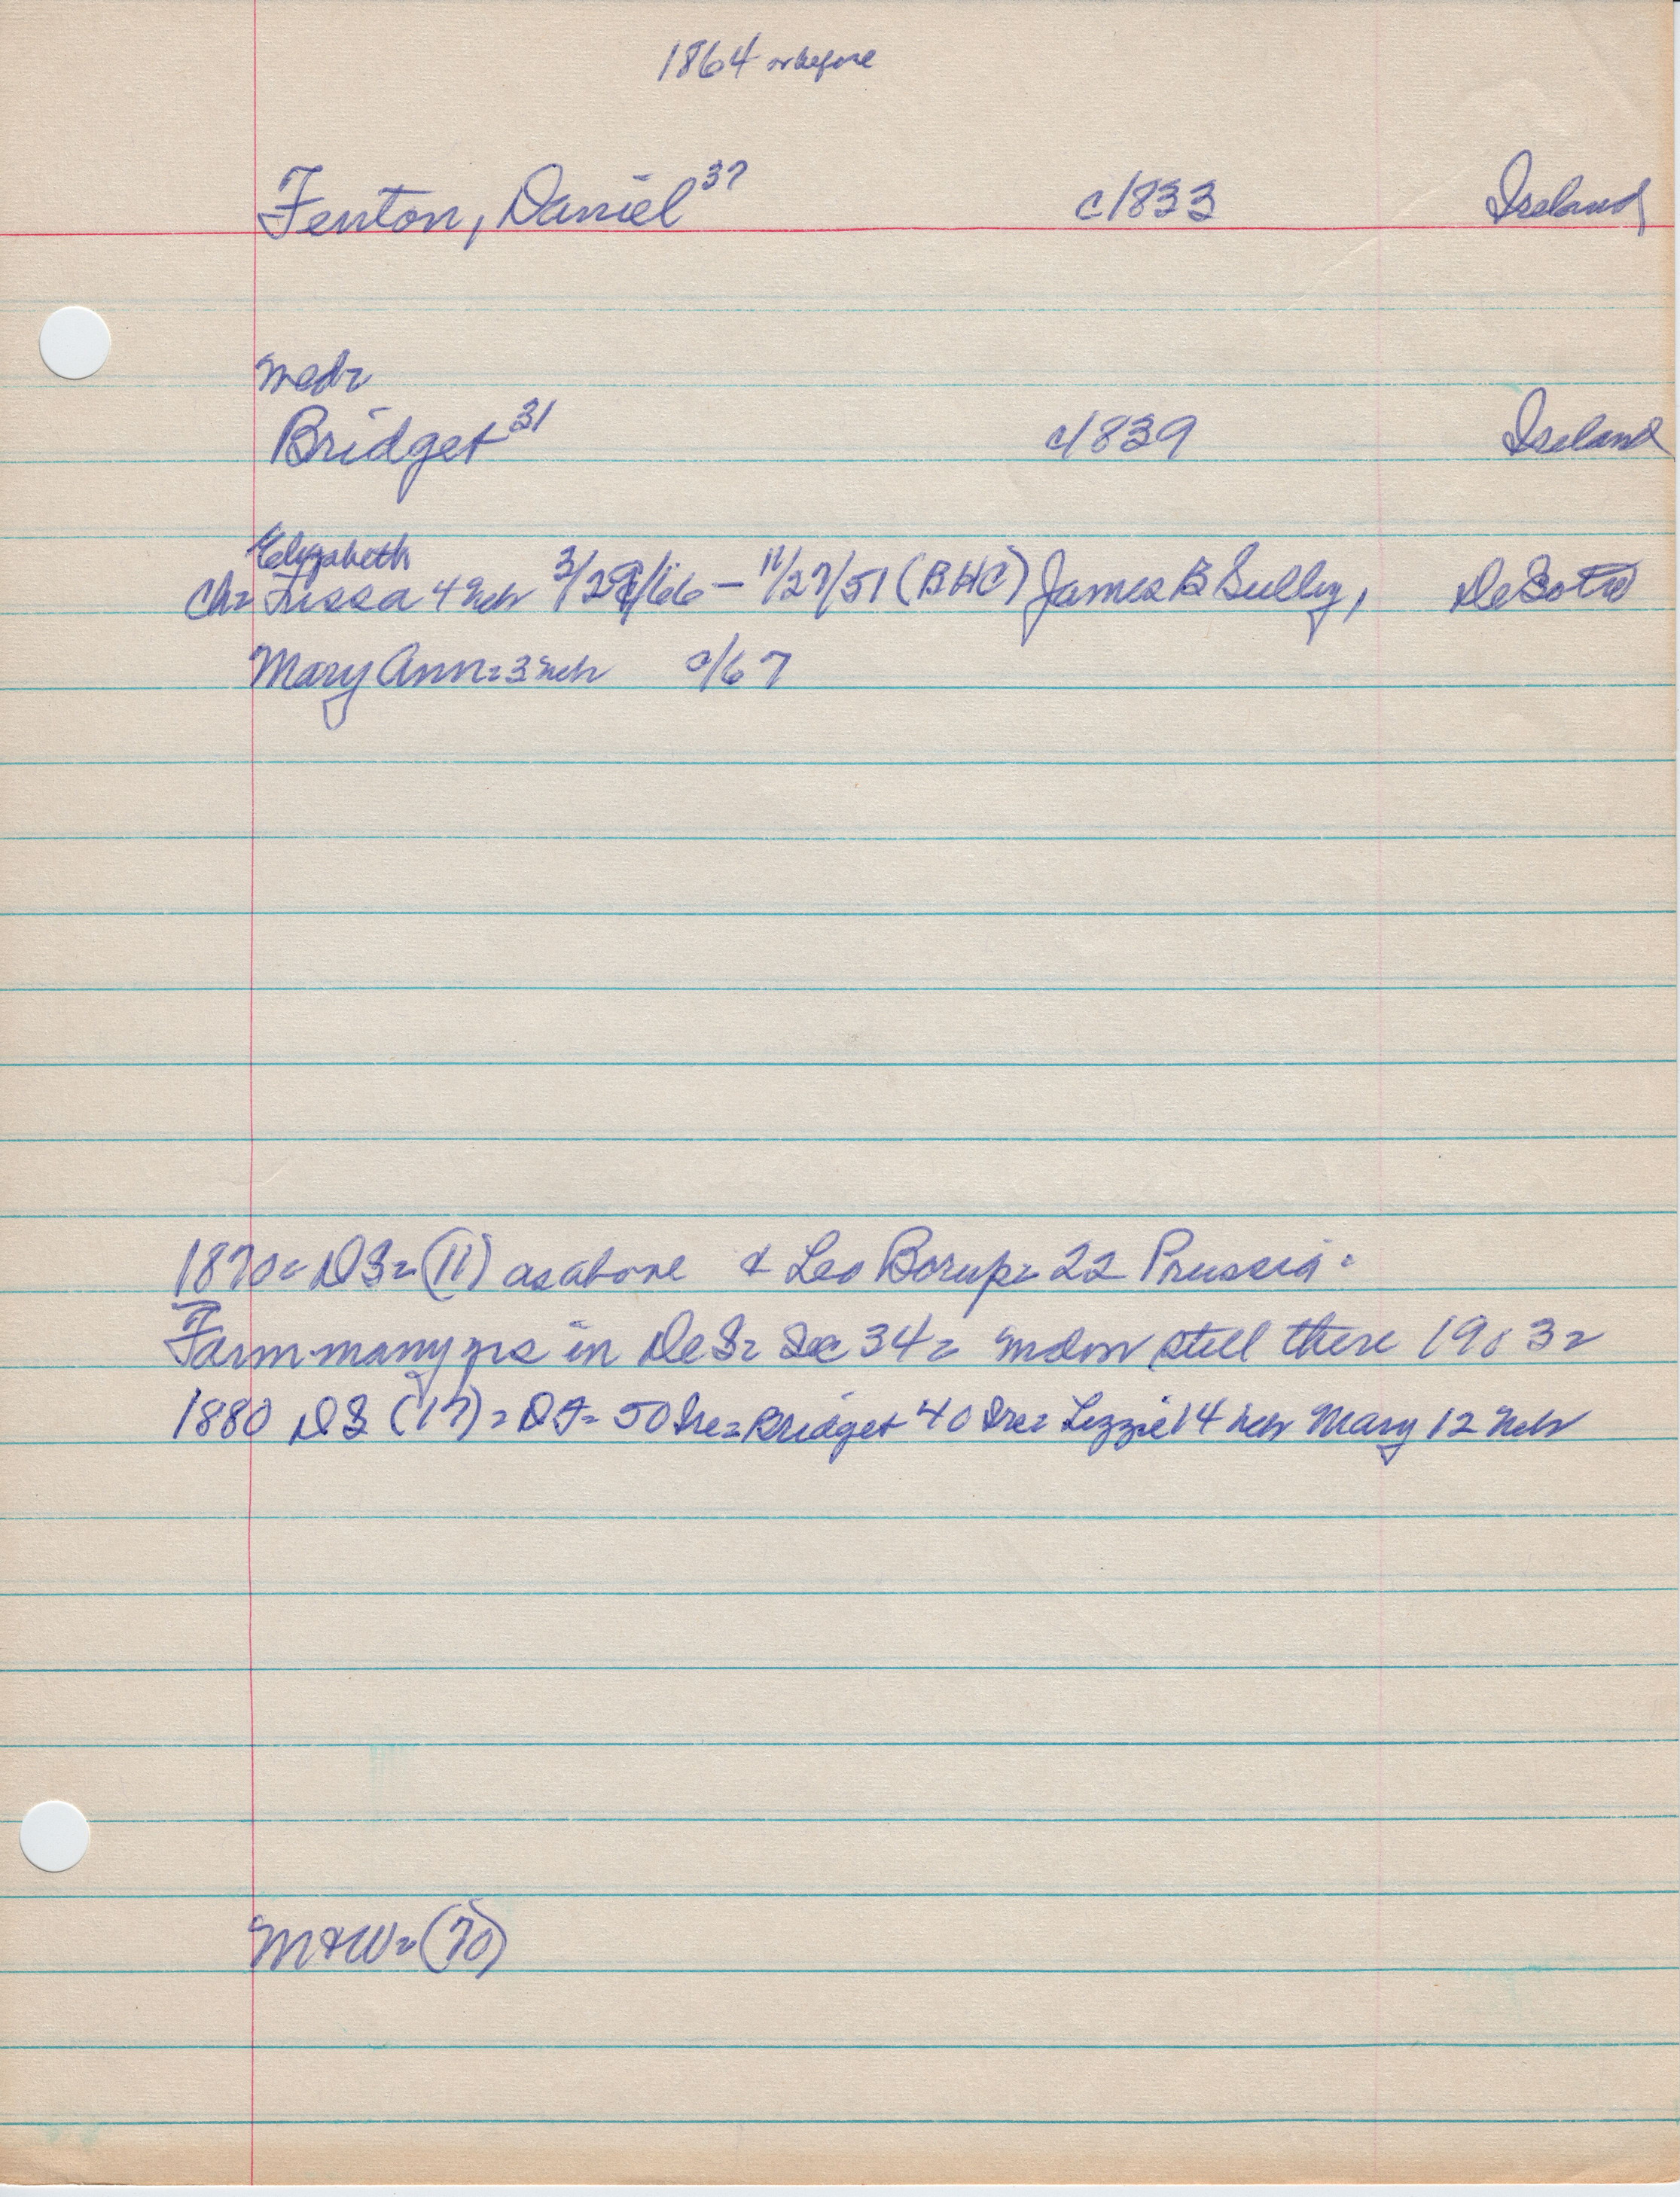 1864 or before
Fenton, Daniel 37 c1833 Ireland
Bridget 31 c1839 Ireland
Elizabeth
Ch= Lissa 4 Neb 3/2 /66 – 11/27/51 (BHC) James B Sully, DeSoto
Mary Ann= 3 Neb c/67
1870= DS= (11) as above & Leo Borup= 22 Prussia.
Farm many yrs in DeS= Sec 34= still there 1903=
1880 DS (17)= DF= 50 Ire= Bridget 40 Ire= Lizzie 14 Neb Mary 12 Neb
M+W= (70)